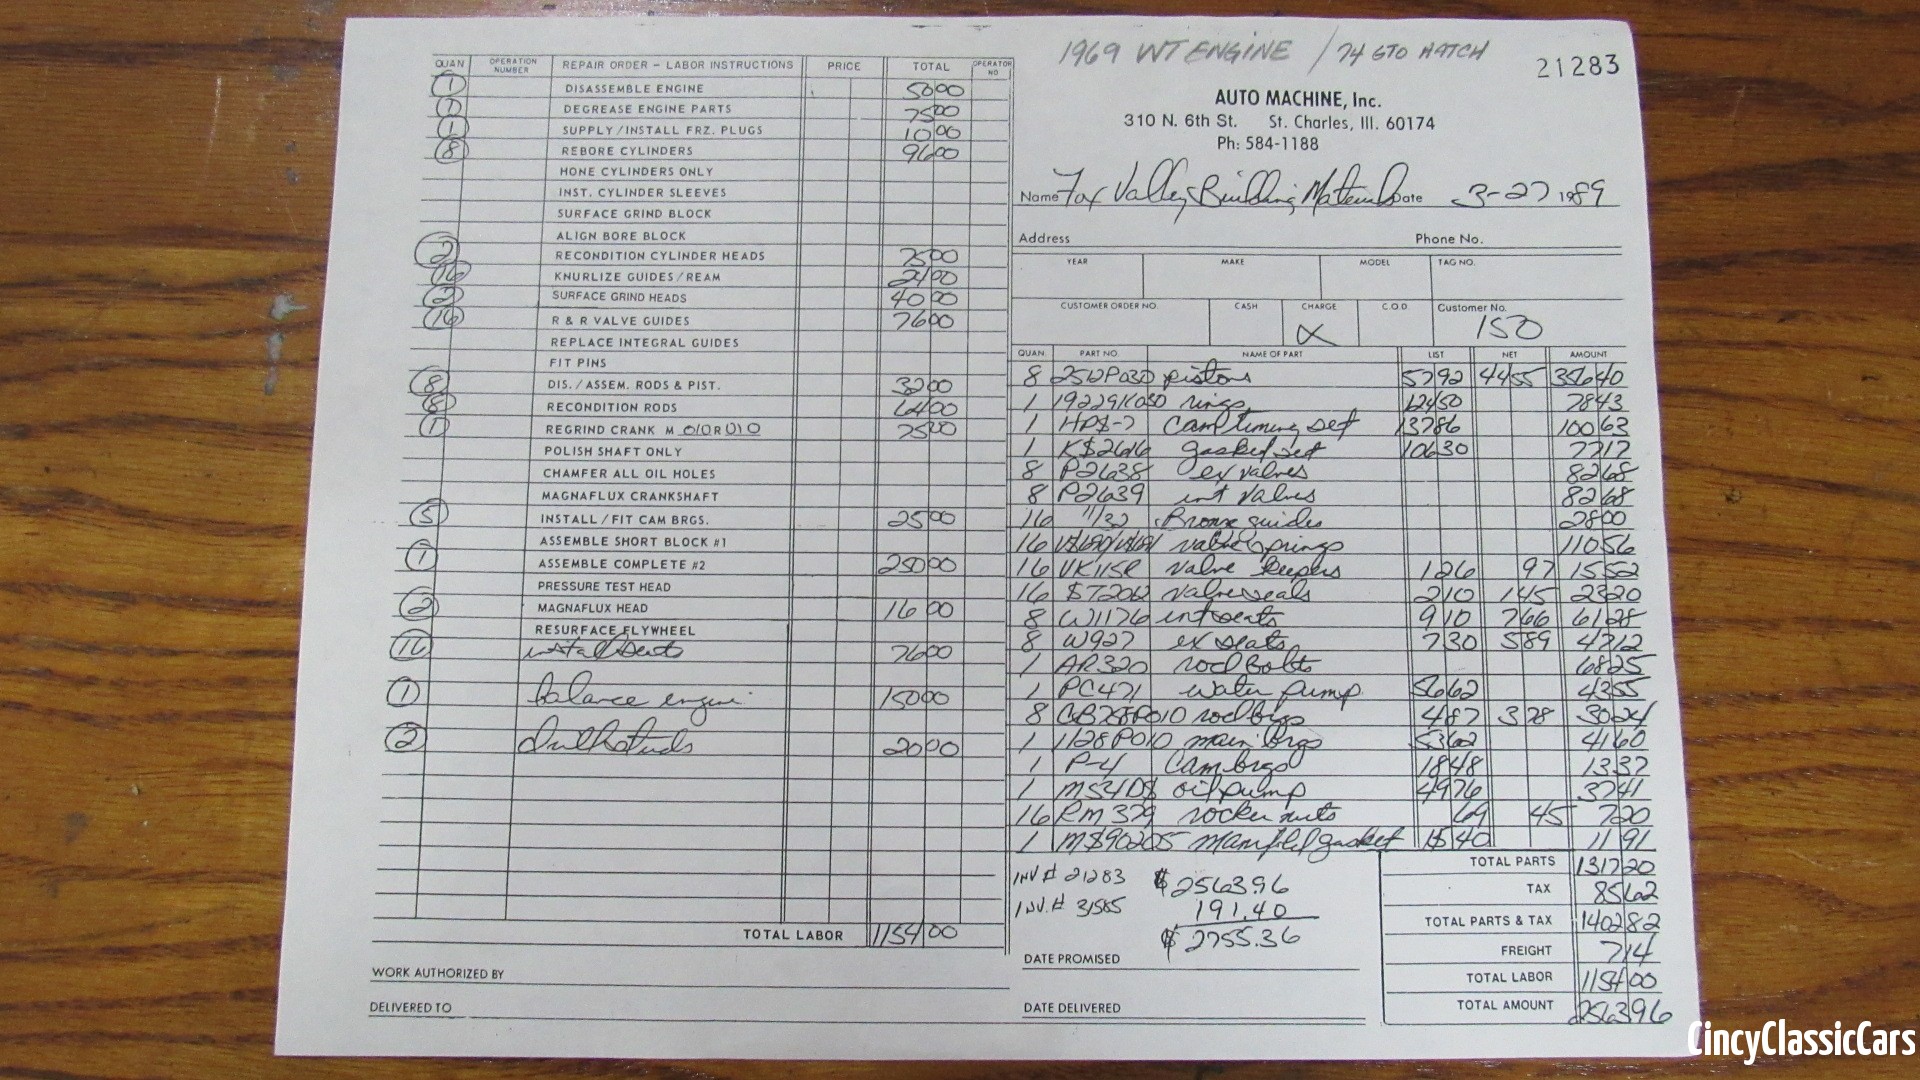 1969 WT ENGINE / 74 GTO HATCH
21283
AUTO MACHINE, Inc.
310 N. 6th St. St. Charles, Ill. 60174
Ph: 584-1188
Name Fox Valley Building Materials Date 3-27 1989
Address Phone No.
YEAR MAKE MODEL TAG NO.
CUSTOMER ORDER NO. CASH CHARGE C.O.D Customer No.
X 150
QUAN OPERATION NUMBER REPAIR ORDER – LABOR INSTRUCTIONS PRICE TOTAL OPERATOR NO
1 DISASSEMBLE ENGINE 50 00
1 DEGREASE ENGINE PARTS 75 00
1 SUPPLY/INSTALL FRZ. PLUGS 10 00
8 REBORE CYLINDERS 96 00
HONE CYLINDERS ONLY
INST. CYLINDER SLEEVES
SURFACE GRIND BLOCK
ALIGN BORE BLOCK
2 RECONDITION CYLINDER HEADS 75 00
16 KNURLIZE GUIDES/REAM 24 00
2 SURFACE GRIND HEADS 40 00
16 R & R VALVE GUIDES 76 00
REPLACE INTEGRAL GUIDES
FIT PINS
8 DIS./ASSEM. RODS & PIST. 32 00
8 RECONDITION RODS 64 00
1 REGRIND CRANK M 010 R 010 75 00
POLISH SHAFT ONLY
CHAMFER ALL OIL HOLES
MAGNAFLUX CRANKSHAFT
5 INSTALL/FIT CAM BRGS. 25 00
ASSEMBLE SHORT BLOCK #1
1 ASSEMBLE COMPLETE #2 250 00
PRESSURE TEST HEAD
2 MAGNAFLUX HEAD 16 00
RESURFACE FLYWHEEL
16 install seats 76 00
1 balance engine 150 00
2 drill studs 20 00
TOTAL LABOR 1154 00
WORK AUTHORIZED BY
DELIVERED TO
QUAN. PART NO. NAME OF PART LIST NET AMOUNT
8 pistons 57 92 44 55 356 40
1 rings 124 50 78 43
1 cam timing set 137 86 100 63
1 gasket set 106 30 77 17
8 P2638 ex valves 82 68
8 P2639 int valves 82 68
16 11/32 Bronze guides 28 00
16 valve springs 110 56
16 VK115R valve keepers 1 26 97 15 52
16 valve seals 2 10 1 45 23 20
8 W1176 int seats 9 10 7 66 61 28
8 W927 ex seats 7 30 5 89 47 12
1 AR320 rod bolts 68 25
1 PC471 water pump 56 62 43 55
8 CB758P010 rod brgs 4 87 3 78 30 24
1 1128P010 main brgs 53 62 41 60
1 P-4 Cam brgs 18 48 13 37
1 MS41DS oil pump 49 76 37 41
16 RM 379 rocker nuts 69 45 7 20
1 MS90205 manifold gasket 15 40 11 91
TOTAL PARTS 1317 20
TAX 85 62
TOTAL PARTS & TAX 1402 82
FREIGHT 7 14
TOTAL LABOR 1154 00
TOTAL AMOUNT 2563 96
INV # 21283 $ 2563.96
INV. # 31585 191.40
$ 2755.36
DATE PROMISED
DATE DELIVERED
CincyClassicCars